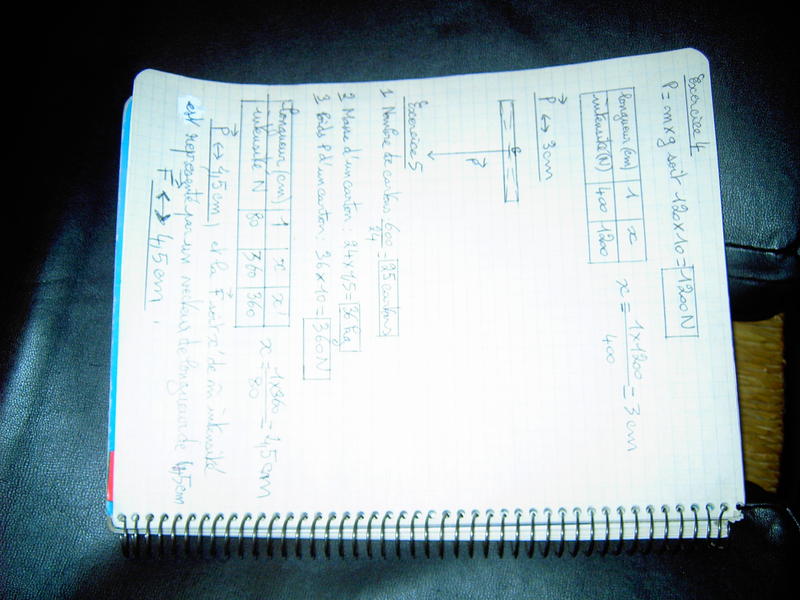 Exercice 4
P = m x g soit 120 x 10 = 1200 N
longueur (cm) 1 x
intensité (N) 400 1200
x = 1 x 1200 / 400 = 3 cm
P ↔ 3 cm
P
Exercice 5
1 Nombre de cartons 600 / 24 = 25 cartons
2 Masse d'un carton : 24 x 1,5 = 36 kg
3 Poids P d'un carton : 36 x 10 = 360 N
longueur (cm) 1 x x'
intensité N 80 360 360
x = 1 x 360 / 80 = 4,5 cm
P ↔ 4,5 cm) et la F de m intensité
est représenté par un vecteur de longueur de 4,5 cm
F ↔ 4,5 cm.